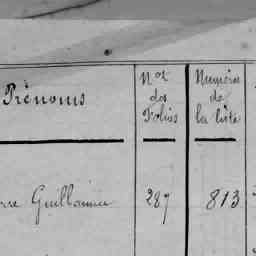 Prénoms
Nos
des
Folios
Numéro
de
la liste
Guillaume
287
813